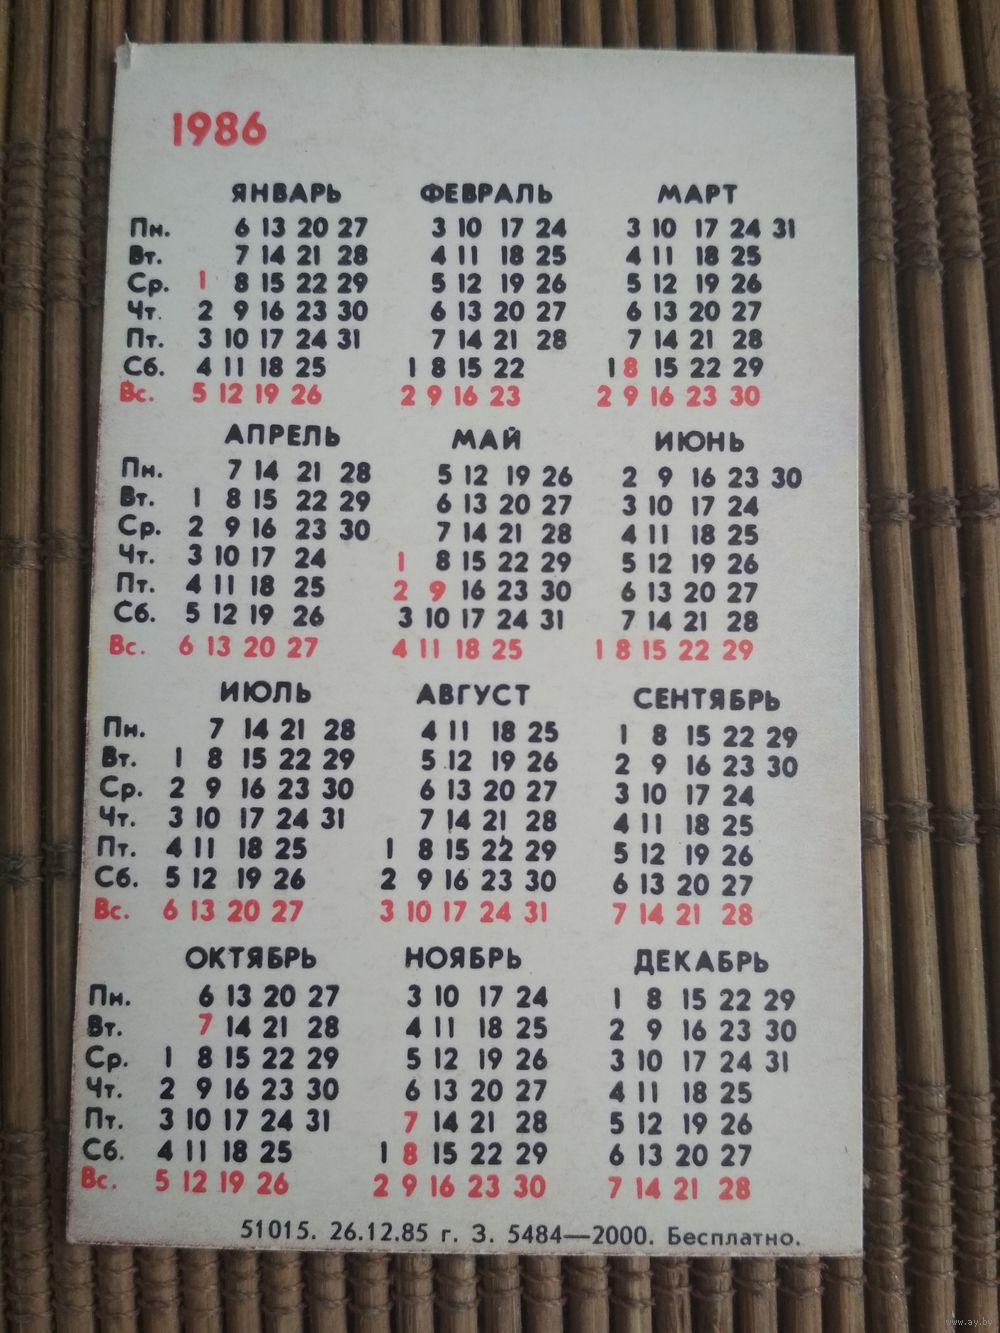 1986
ЯНВАРЬ ФЕВРАЛЬ МАРТ
Пн. 6 13 20 27 3 10 17 24 3 10 17 24 31
Вт. 7 14 21 28 4 11 18 25 4 11 18 25
Ср. 1 8 15 22 29 5 12 19 26 5 12 19 26
Чт. 2 9 16 23 30 6 13 20 27 6 13 20 27
Пт. 3 10 17 24 31 7 14 21 28 7 14 21 28
Сб. 4 11 18 25 1 8 15 22 1 8 15 22 29
Вс. 5 12 19 26 2 9 16 23 2 9 16 23 30
АПРЕЛЬ МАЙ ИЮНЬ
Пн. 7 14 21 28 5 12 19 26 2 9 16 23 30
Вт. 1 8 15 22 29 6 13 20 27 3 10 17 24
Ср. 2 9 16 23 30 7 14 21 28 4 11 18 25
Чт. 3 10 17 24 1 8 15 22 29 5 12 19 26
Пт. 4 11 18 25 2 9 16 23 30 6 13 20 27
Сб. 5 12 19 26 3 10 17 24 31 7 14 21 28
Вс. 6 13 20 27 4 11 18 25 1 8 15 22 29
ИЮЛЬ АВГУСТ СЕНТЯБРЬ
Пн. 7 14 21 28 4 11 18 25 1 8 15 22 29
Вт. 1 8 15 22 29 5 12 19 26 2 9 16 23 30
Ср. 2 9 16 23 30 6 13 20 27 3 10 17 24
Чт. 3 10 17 24 31 7 14 21 28 4 11 18 25
Пт. 4 11 18 25 1 8 15 22 29 5 12 19 26
Сб. 5 12 19 26 2 9 16 23 30 6 13 20 27
Вс. 6 13 20 27 3 10 17 24 31 7 14 21 28
ОКТЯБРЬ НОЯБРЬ ДЕКАБРЬ
Пн. 6 13 20 27 3 10 17 24 1 8 15 22 29
Вт. 7 14 21 28 4 11 18 25 2 9 16 23 30
Ср. 1 8 15 22 29 5 12 19 26 3 10 17 24 31
Чт. 2 9 16 23 30 6 13 20 27 4 11 18 25
Пт. 3 10 17 24 31 7 14 21 28 5 12 19 26
Сб. 4 11 18 25 1 8 15 22 29 6 13 20 27
Вс. 5 12 19 26 2 9 16 23 30 7 14 21 28
51015. 26.12.85 г. З. 5484—2000. Бесплатно.
www.ay.by